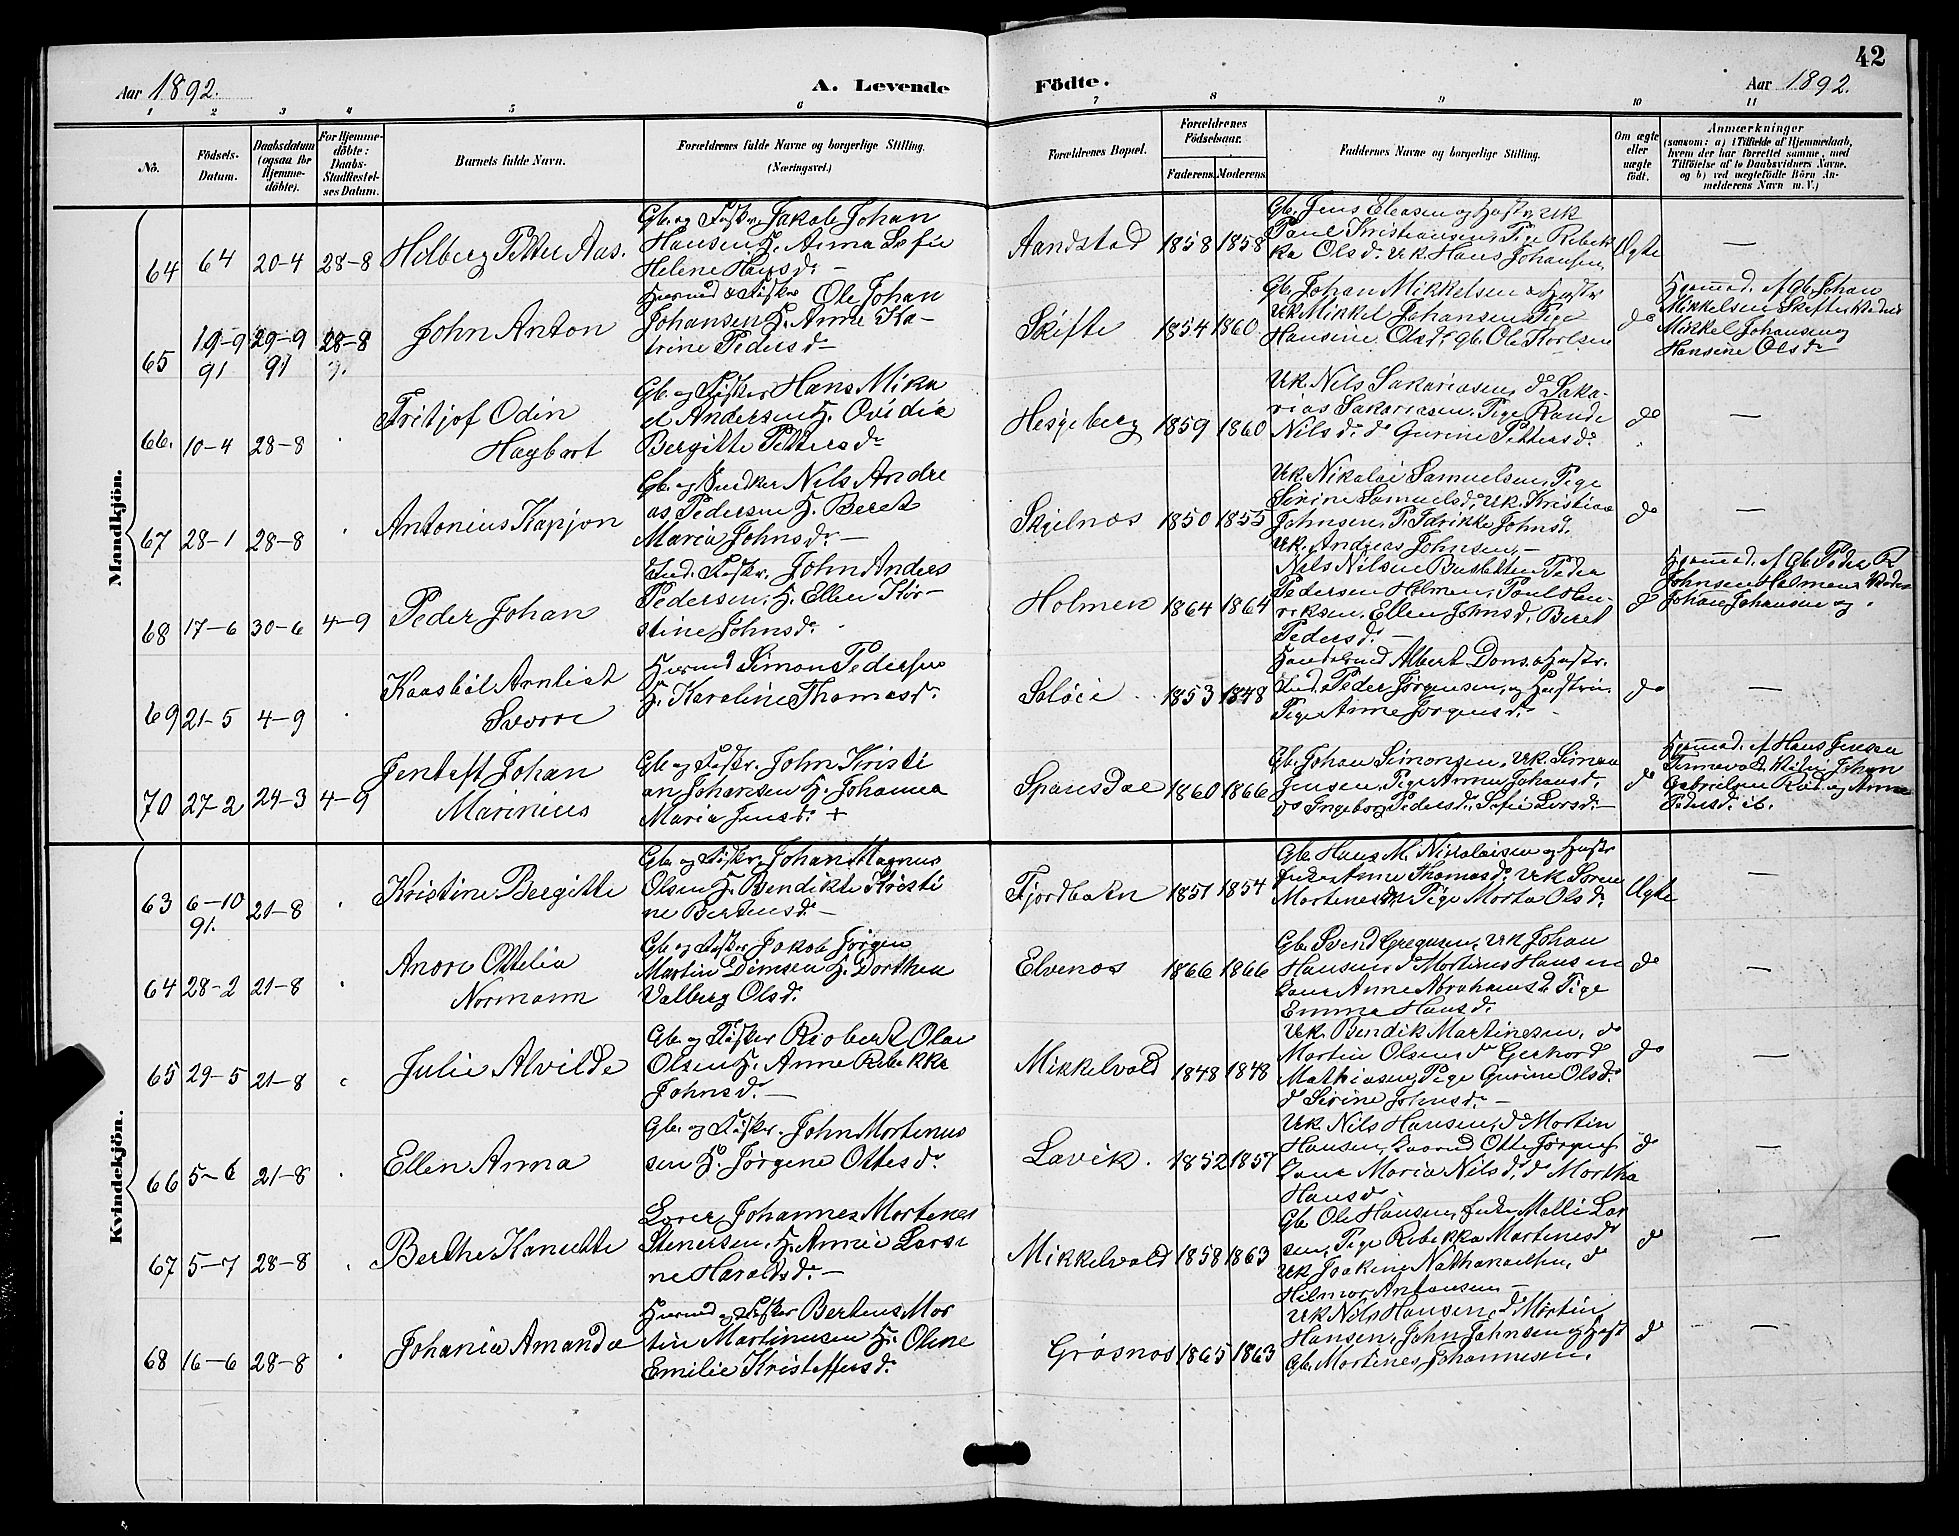 42
Aar 1892.
A. Levende
Födte.
Aar 1892.
1 2 3 4 5 6 7 8 9 10 11
No.
Födsels-
Datum.
Daabsdatum
(ogsaa for
Hjemme-
döbte).
For Hjemme-
döbte:
Daabs-
Stadfæstel-
ses Datum.
Barnets fulde Navn.
Forældrenes fulde Navne og borgerlige Stilling.
(Næringsvei.)
Forældrenes Bopæl.
Forældrenes
Födselsaar.
Faderens. Moderens.
Faddernes Navne og borgerlige Stilling.
Om ægte
eller
uægte
födt.
Anmærkninger
(saasom: a) i Tilfælde af Hjemmedaab,
hvem der har forrettet samme, med
Tilföielse af to Daabsvidners Navne.
og b) ved uægtefödte Börn An-
melderens Navn m. V.)
Mandkjön.
64 64 20-4 28-8 Hilberg Petter Aas.
Gb. og Fisker Jakob Johan
Hansen H. Anna Sofie
Helene Hansdr. —
Aandstad 1858 1858
Gb. Jens Eleasen og Hustr, Uk
Paul Kristiansen, Pige Rebek
ka Olsdr. Uk. Hans Johansen,
Ægte —
65 19-9 91 29-9 91 28-8 John Anton
Huusmd & Fisker Ole Johan
Johansen H. Anne Ka-
trine Pedersdr —
Skifte 1854 1860
Gb. Johan Mikkelsen & Hustr
Uk Mikkel Johansen Pige
Hansine Olsdr. Gb. Ole Karlsen
do
Hjemmed. af Gb. Johan
Mikkelsen Skifte
Mikkel Johansen og
Hansine Olsdr —
66. 10-4 28-8 Fritjof Odin
Hagbart
Gb. og Fisker Hans Mika
el Andersen H. Ovidia
Bergitte Pettersdr
Hesjeberg 1859 1860
Uk. Nils Sakariasen, do Saka-
rias Sakariasen, Pige Rande
Nilsdr. do Gurine Pettersdr.
do —
67 28-1 28-8 Antonius Kapjon
Gb. og Snedker Nils Andre
as Pedersen H. Beret
Maria Johnsdr. —
Skjelnos 1850 1855
Uk. Nikolai Samuelsen, Pige
Sirine Samuelsdr, Uk. Kristian
Johnsen, P. Fdrikke Johnsdr.
Uk. Andreas Johnsen, —
do —
68 17-6 30-6 4-9 Peder Johan
Ind. Fisker. John Anders
Pedersen, H. Ellen Kir-
stine Johnsdr.
Holmen 1864 1864
Nils Nilsen Peder
Pedersen Holmen, Paul Hen-
riksen, Ellen Johnsdr, Beret
Pedersdr. —
do
Hjemmed. af Gb. Peder R
Johnsen Holmen
Johan Johansen og .
69 21-5 4-9 Kaasböl Arnliot
Sverre
Huusmd Simon Pedersen
H. Karoline Thomasdr.
Salöie 1853 1848
Handelsmd Albert Dons & Hustr.
Ind. Peder Jörgensen, og Hustru
Pige Anne Jörgensdr.
do —
70 27-2 24-3 4-9 Jentoft Johan
Marinius
Gb. og Fisker. John Kristi
an Johansen H. Johanna
Maria Jensdr. +
Spansdal 1860 1866
Gb. Johan Simonsen, Uk. Simon
Jensen, Pige Anna Johansdr,
do Ingeborg Pedersdr. Sofie Larsdr —
do
Hjemmed. af Hans Jensen
Johan
Gabrielsen og Anne
Pedersdr. ib.
Kvindekjön.
63 6-10 91. 21-8 Kristine Bergitte
Gb. og Fisker, Johan Magnus
Olsen H. Bendikte Kristi
ne Bertensdr —
Fjordbotn 1851 1854
Gb. Hans M. Nikolaisen og Hustr
Enke Anne Thomasdr. Uk. Soren
Martinesen Pige Marta Olsdr.
Ægte —
64 28-2 21-8 Anore Ottelia
Normann
Gb. og Fisker Jakob Jörgen
Martin Dimsen H. Dorthea
Valberg Olsdr.
Elvenos 1866 1866
Gb. Svend Gregusen, Uk Johan
Hansen, do Martinus Hansen
Kone Anne Abrahamsdr. Pige
Emma Hansdr.
do —
65 29-5 21-8 Julie Alvilde
Gb. og Fisker Riobert Olai
Olsen H. Anne Rebekka
Johnsdr. —
Mikkelvold 1848 1848
Uk. Bendik Martinesen, do
Martin Olsen, do Gerhard
Mathiasen, Pige Gurine Olsdr.
do Sirine Johnsdr. —
do —
66 5-6 21-8 Ellen Anna
Gb. og Fisker. John Mortenus
sen H. Jörgene Ottesdr.
Lavik. 1852 1857
Uk. Nils Hansen, do Martin
Hansen, Otte Jörgens
Kone Maria Nilsdr. do Martha
Hansdr
do —
67 5-7 28-8 Berthe Kanutte
Lærer Johannes Mortenes
Stenersen, H. Annie Larsi
ne Haraldsdr. —
Mikkelvold 1858 1863
Gb. Ole Hansen, Enke Malli Lar
sen, Pige Rebekka Martinesdr
Uk. Joakim Nathanaelsen, do
Hilmor Antonsen —
do —
68 16-6 28-8 Johania Amanda
Huusmd og Fisker Bertens Mor
tin Martinusen H. Oline
Emilie Kristoffersdr.
Gråsnos 1865 1863
Uk Nils Hansen, do Martin
Hansen, John Johnsen og Hust
Gb. Mortines Johannesen.
do —